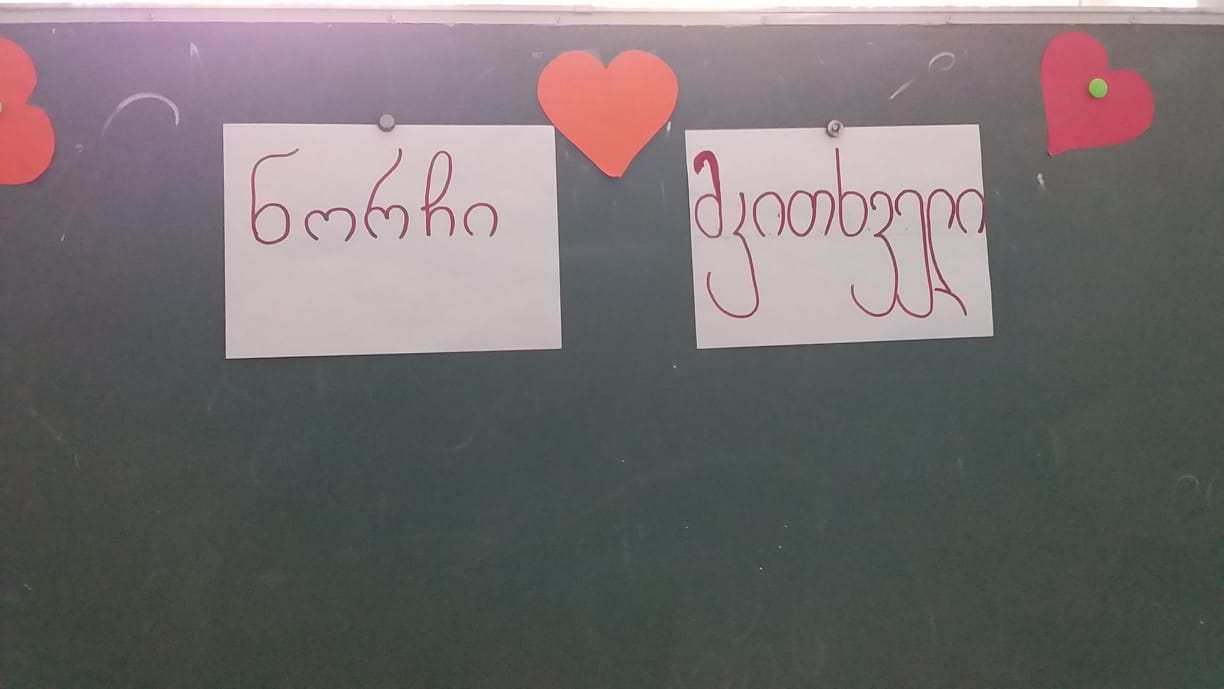 ნორჩი
მკითხველი